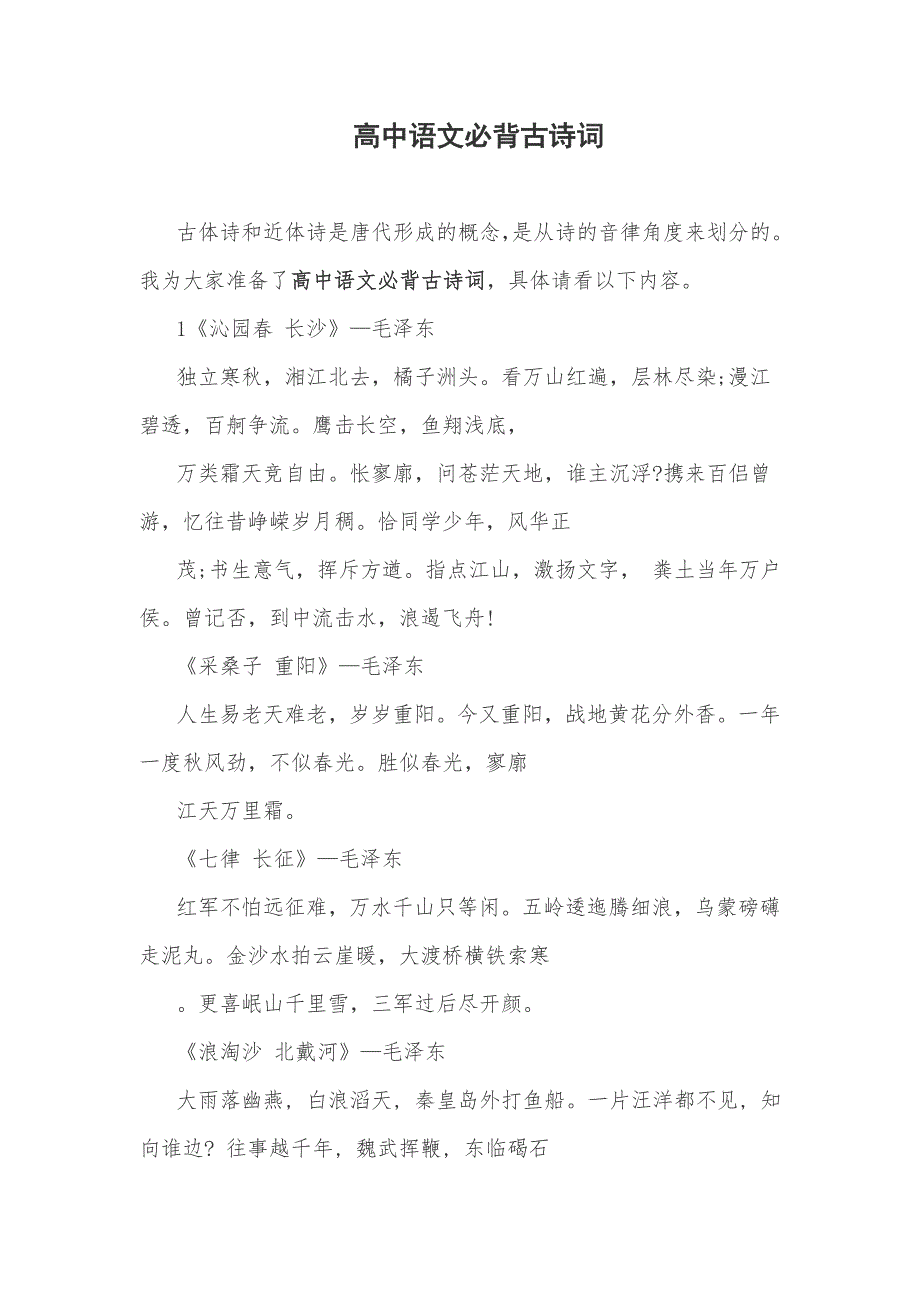 高中语文必背古诗词
古体诗和近体诗是唐代形成的概念,是从诗的音律角度来划分的。
我为大家准备了高中语文必背古诗词，具体请看以下内容。
1《沁园春 长沙》—毛泽东
独立寒秋，湘江北去，橘子洲头。看万山红遍，层林尽染;漫江
碧透，百舸争流。鹰击长空，鱼翔浅底，
万类霜天竞自由。怅寥廓，问苍茫天地，谁主沉浮?携来百侣曾
游，忆往昔峥嵘岁月稠。恰同学少年，风华正
茂;书生意气，挥斥方遒。指点江山，激扬文字， 粪土当年万户
侯。曾记否，到中流击水，浪遏飞舟!
《采桑子 重阳》—毛泽东
人生易老天难老，岁岁重阳。今又重阳，战地黄花分外香。一年
一度秋风劲，不似春光。胜似春光，寥廓
江天万里霜。
《七律 长征》—毛泽东
红军不怕远征难，万水千山只等闲。五岭逶迤腾细浪，乌蒙磅礴
走泥丸。金沙水拍云崖暖，大渡桥横铁索寒
。更喜岷山千里雪，三军过后尽开颜。
《浪淘沙 北戴河》—毛泽东
大雨落幽燕，白浪滔天，秦皇岛外打鱼船。一片汪洋都不见，知
向谁边? 往事越千年，魏武挥鞭，东临碣石